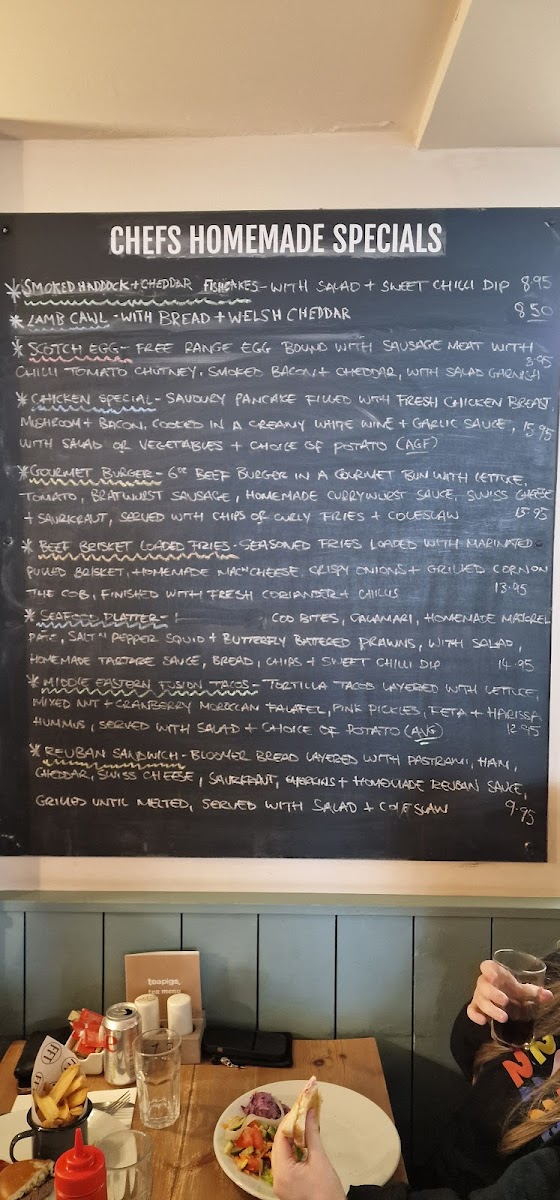 CHEFS HOMEMADE SPECIALS
* SMOKED HADDOCK + CHEDDAR FISHCAKES - WITH SALAD + SWEET CHILLI DIP 8.95
* LAMB CAWL - WITH BREAD + WELSH CHEDDAR 8.50
* SCOTCH EGG - FREE RANGE EGG BOUND WITH SAUSAGE MEAT WITH
CHILLI TOMATO CHUTNEY, SMOKED BACON + CHEDDAR, WITH SALAD GARNISH 8.95
* CHICKEN SPECIAL - SAVOURY PANCAKE FILLED WITH FRESH CHICKEN BREAST
MUSHROOM + BACON, COOKED IN A CREAMY WHITE WINE + GARLIC SAUCE, 15.95
WITH SALAD OR VEGETABLES + CHOICE OF POTATO (AGF)
* GOURMET BURGER - 6oz BEEF BURGER IN A GOURMET BUN WITH LETTUCE,
TOMATO, BRATWURST SAUSAGE, HOMEMADE CURRYWURST SAUCE, SWISS CHEESE
+ SAURKRAUT, SERVED WITH CHIPS OF CURLY FRIES + COLESLAW 15.95
* BEEF BRISKET LOADED FRIES - SEASONED FRIES LOADED WITH MARINATED
PULLED BRISKET, HOMEMADE MAC'N'CHEESE, CRISPY ONIONS + GRILLED CORN ON
THE COB, FINISHED WITH FRESH CORIANDER + CHILLIS 13.95
* SEAFOOD PLATTER COD BITES, CALAMARI, HOMEMADE MACKREL
PATE, SALT 'N' PEPPER SQUID + BUTTERFLY BATTERED PRAWNS, WITH SALAD,
HOMEMADE TARTARE SAUCE, BREAD, CHIPS + SWEET CHILLI DIP 14.95
* MIDDLE EASTERN FUSION TACOS - TORTILLA TACOS LAYERED WITH LETTUCE,
MIXED NUT + CRANBERRY MOROCCAN FALAFEL, PINK PICKLES, FETA + HARISSA
HUMMUS, SERVED WITH SALAD + CHOICE OF POTATO (AVG) 12.95
* REUBAN SANDWICH - BLOOMER BREAD LAYERED WITH PASTRAMI, HAM,
CHEDDAR, SWISS CHEESE, SAURKRAUT, GHERKINS + HOMEMADE REUBAN SAUCE,
GRILLED UNTIL MELTED, SERVED WITH SALAD + COLESLAW 9.95
teapigs.
tea menu